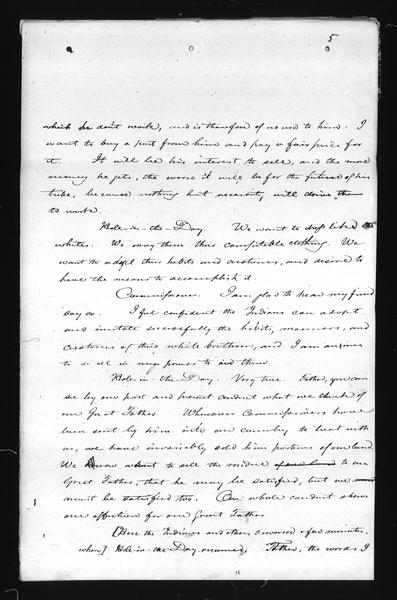 5
which he don't work, and is therefore of no use to him. I
want to buy a part from him and pay a fair price for
it. It will be his interest to sell, and the more
money he gets, the worse it will be for the future of his
tribe, because nothing but necessity will drive them
to work.
Hole-in-the-Day. We want to dress like the
whites. We envy them this comfortable clothing. We
want to adopt their habits and customs, and desire to
have the means to accomplish it.
Commissioner. I am glad to hear my friend
say so. I feel confident the Indians can adopt
and imitate successfully the habits, manners, and
customs of their white brethren, and I am anxious
to do all in my power to aid them.
Hole-in-the-Day. Very true. Father, you can
see by our past and present conduct what we think of
our Great Father. Whenever Commissioners have
been sent by him into our country to treat with
us, we have invariably sold him portions of our land.
We now want to sell the residue to our
Great Father, that he may be satisfied, but we
must be satisfied too. Our whole conduct shows
our affection for our Great Father
[Here the Indians and others conversed a few minutes,
when] Hole-in-the-Day resumed, Father, the words I